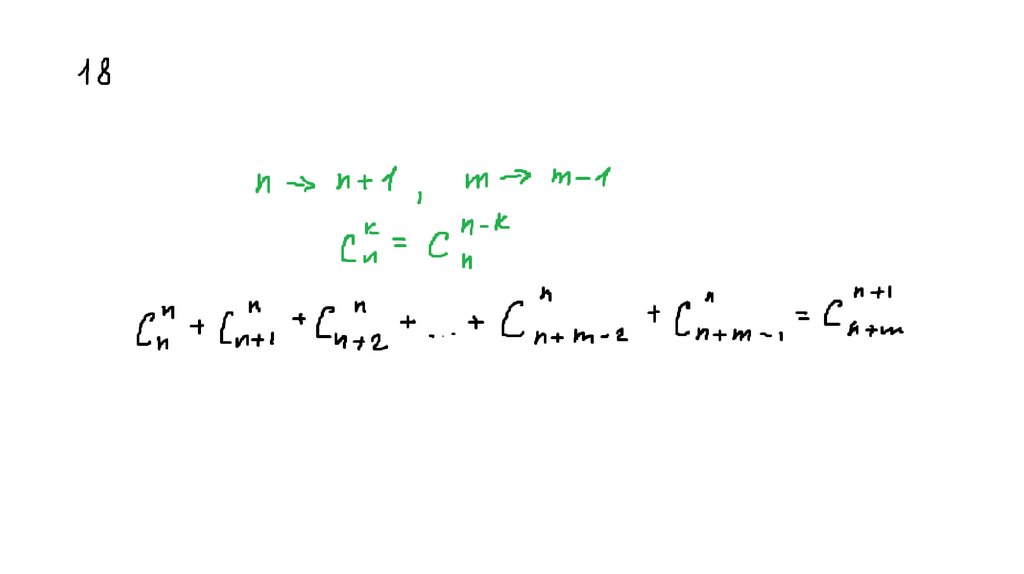 18
n → n+1, m → m-1
C_n^k = C_n^{n-k}
C_n^n + C_{n+1}^n + C_{n+2}^n + ... + C_{n+m-2}^n + C_{n+m-1}^n = C_{n+m}^{n+1}